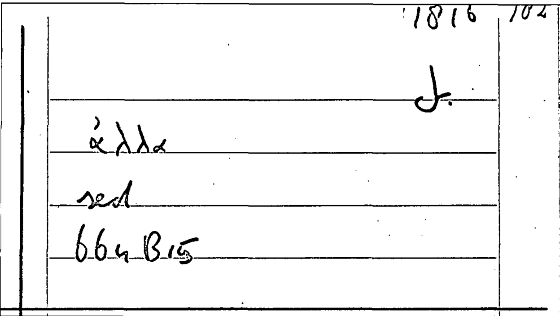 1816 102
J.
ἀλλα
sed
664 B15